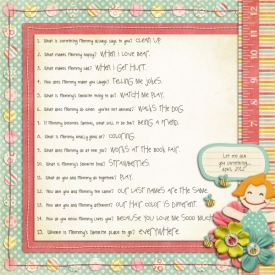 1. What is something Mommy always says to you? CLEAN UP.
2. What makes Mommy happy? WHEN I LOVE BEAR.
3. What makes Mommy sad? WHEN I GET HURT.
4. How does Mommy make you laugh? TELLING ME JOKES.
5. What is Mommy's favorite thing to do? WATCH ME PLAY.
6. What does Mommy do when you're not around? WALKS THE DOG.
7. If Mommy becomes famous, what will it be for? BEING A FRIEND.
8. What is Mommy really good at? COLORING.
9. What does Mommy do at her job? WORKS AT THE BOOK FAIR.
10. What is Mommy's favorite food? STRAWBERRIES.
11. What do you and Mommy do together? PLAY.
12. How are you and Mommy the same? OUR LAST NAMES ARE THE SAME.
13. How are you and Mommy different? OUR HAIR COLOR IS DIFFERENT.
14. How do you know Mommy loves you? BECAUSE YOU LOVE ME SOOO MUCH
15. Where is Mommy's favorite place to go? EVERYWHERE.
12
11
10
9
8
Let me ask
you something...
April, 2012